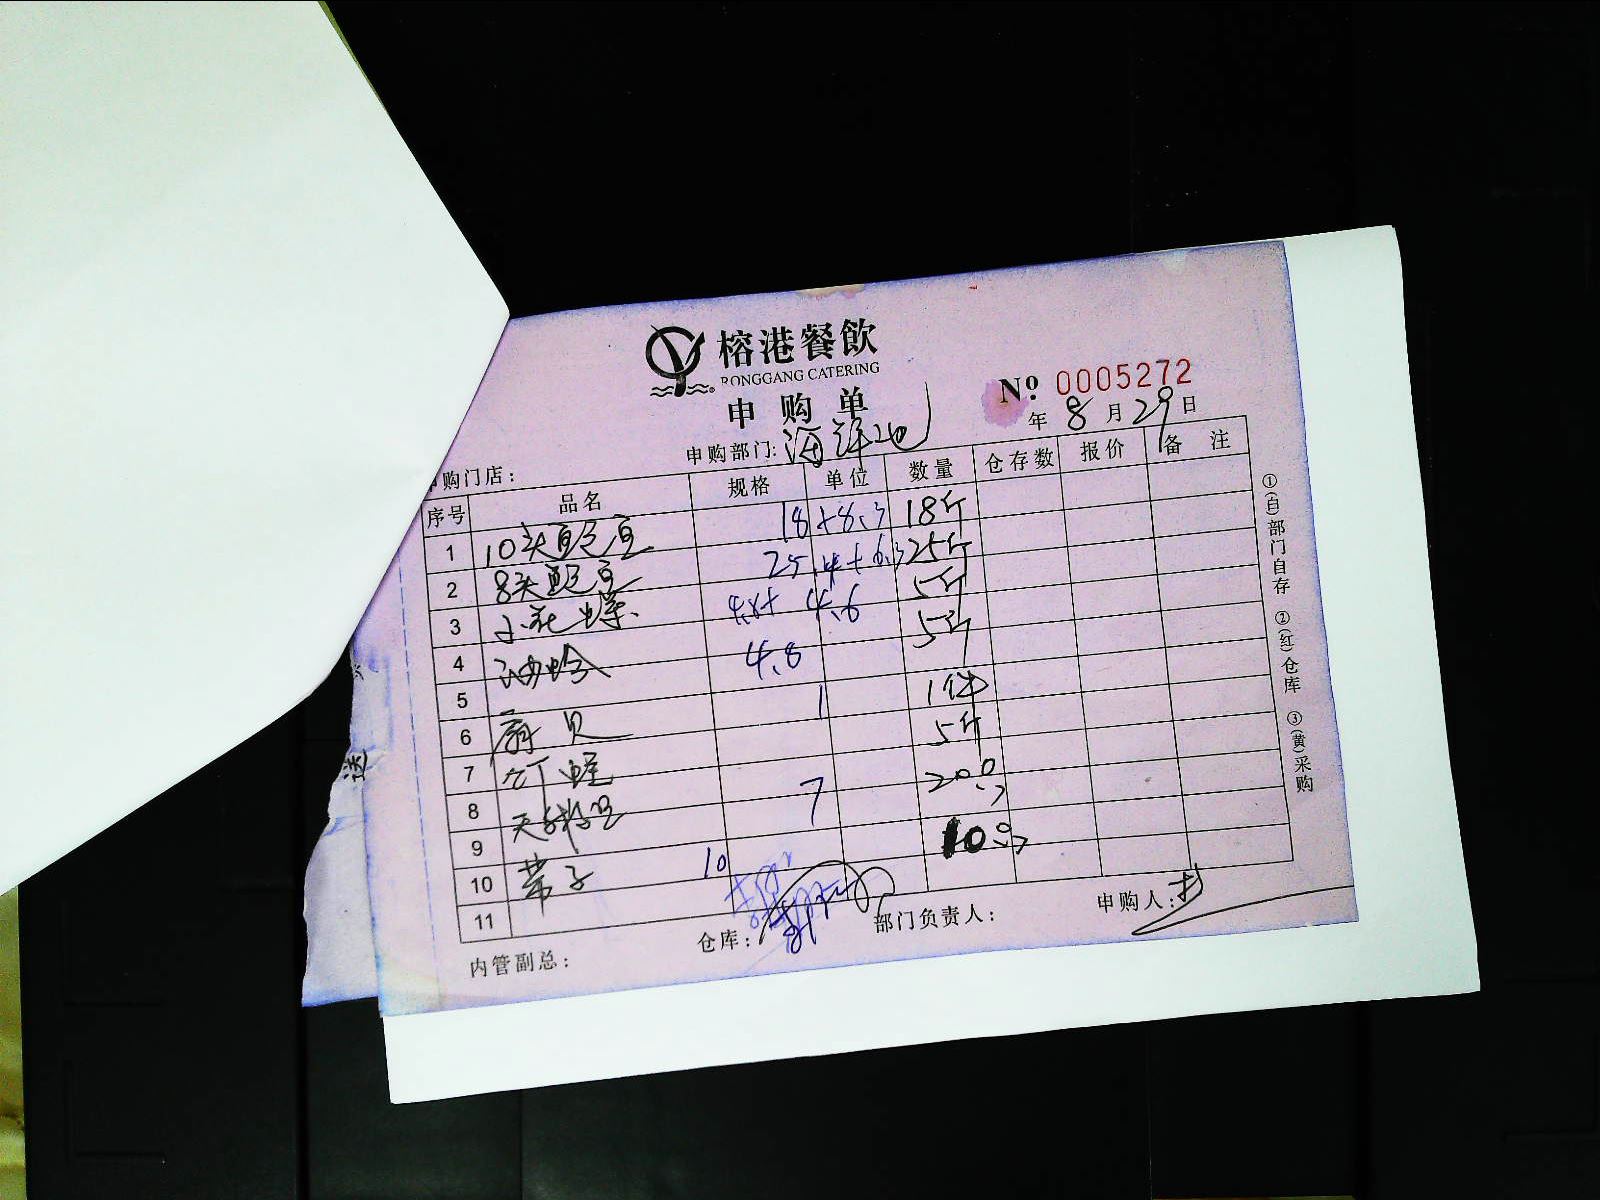 榕港餐飲
RONGGANG CATERING
申购单
Nº 0005272
年 8 月 29 日
申购部门: 海洋池
购门店:
序号 品名 规格 单位 数量 仓存数 报价 备注
1 10头鲍鱼 18+8.3 18斤
2 8头鲍鱼 25.4+6.3 25斤
3 小花螺 4.8+ 4.6 5斤
4 油蛤 4.8 5斤
5
6 扇贝 1 1件
7 5斤
8 7 20只
9
10 带子 10 10只
11
内管副总:
仓库:
部门负责人:
申购人:
①(自)部门自存 ②(红)仓库 ③(黄)采购
送